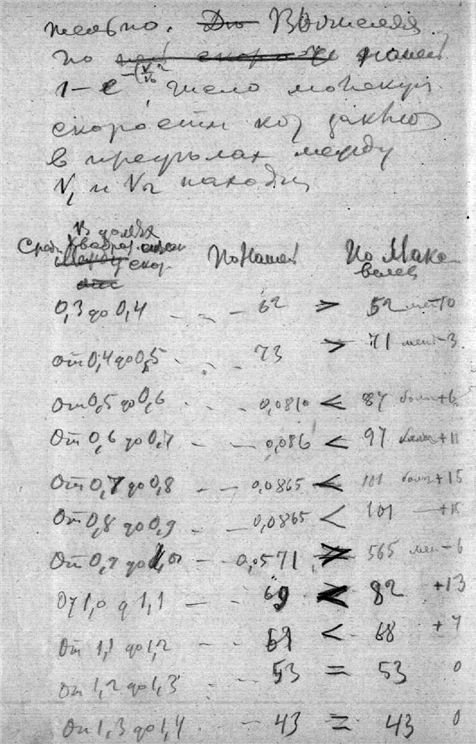 тельно. ~~Дю~~ Вычисляя
по нашей
1 – e^–(V/V₀)² число молекул
скорости кот заключ
в пределах между
V₁ и V₂ находи
В долях
Сред. квадрат. скор
По нашей По Макс
велев
0,3 до 0,4 - - - 62 > 52 мен -10
от 0,4 до 0,5 - - - 73 > 71 мен -3
от 0,5 до 0,6 - - - 0,0810 < 87 более +6
От 0,6 до 0,7 - - - 0,086 < 97 более +11
От 0,7 до 0,8 - - 0,0865 < 101 более +15
От 0,8 до 0,9 - - 0,0865 < 101 - +15
От 0,9 до 1,0 - 0,0571 > 565 мен -6
От 1,0 д 1,1 - - 69 < 82 +13
От 1,1 до 1,2 - - 61 < 68 +7
От 1,2 до 1,3 - 53 = 53 0
От 1,3 до 1,4 - 43 = 43 0